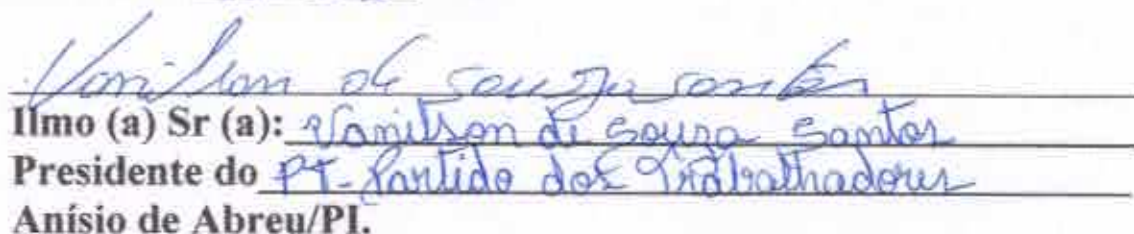 Vanilson de Souza Santos
Ilmo (a) Sr (a): Vanilson de Souza Santos
Presidente do PT - Partido dos Trabalhadores
Anísio de Abreu/PI.